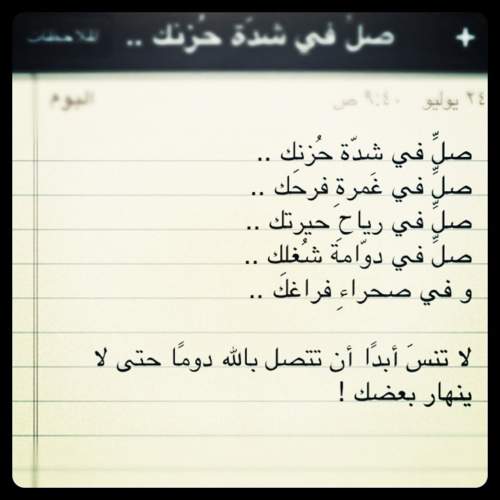 الملاحظات صلِّ في شدّة حُزنك .. +
اليوم ٢٤ يوليو ٩:٤٠ ص
صلِّ في شدّة حُزنك ..
صلِّ في غَمرةِ فرحَك ..
صلِّ في رياحَ حيرتك ..
صلِّ في دوّامة شُغلك ..
و في صحراءِ فراغكَ ..
لا تنسَ أبدًا أن تتصل بالله دومًا حتى لا
ينهار بعضك !